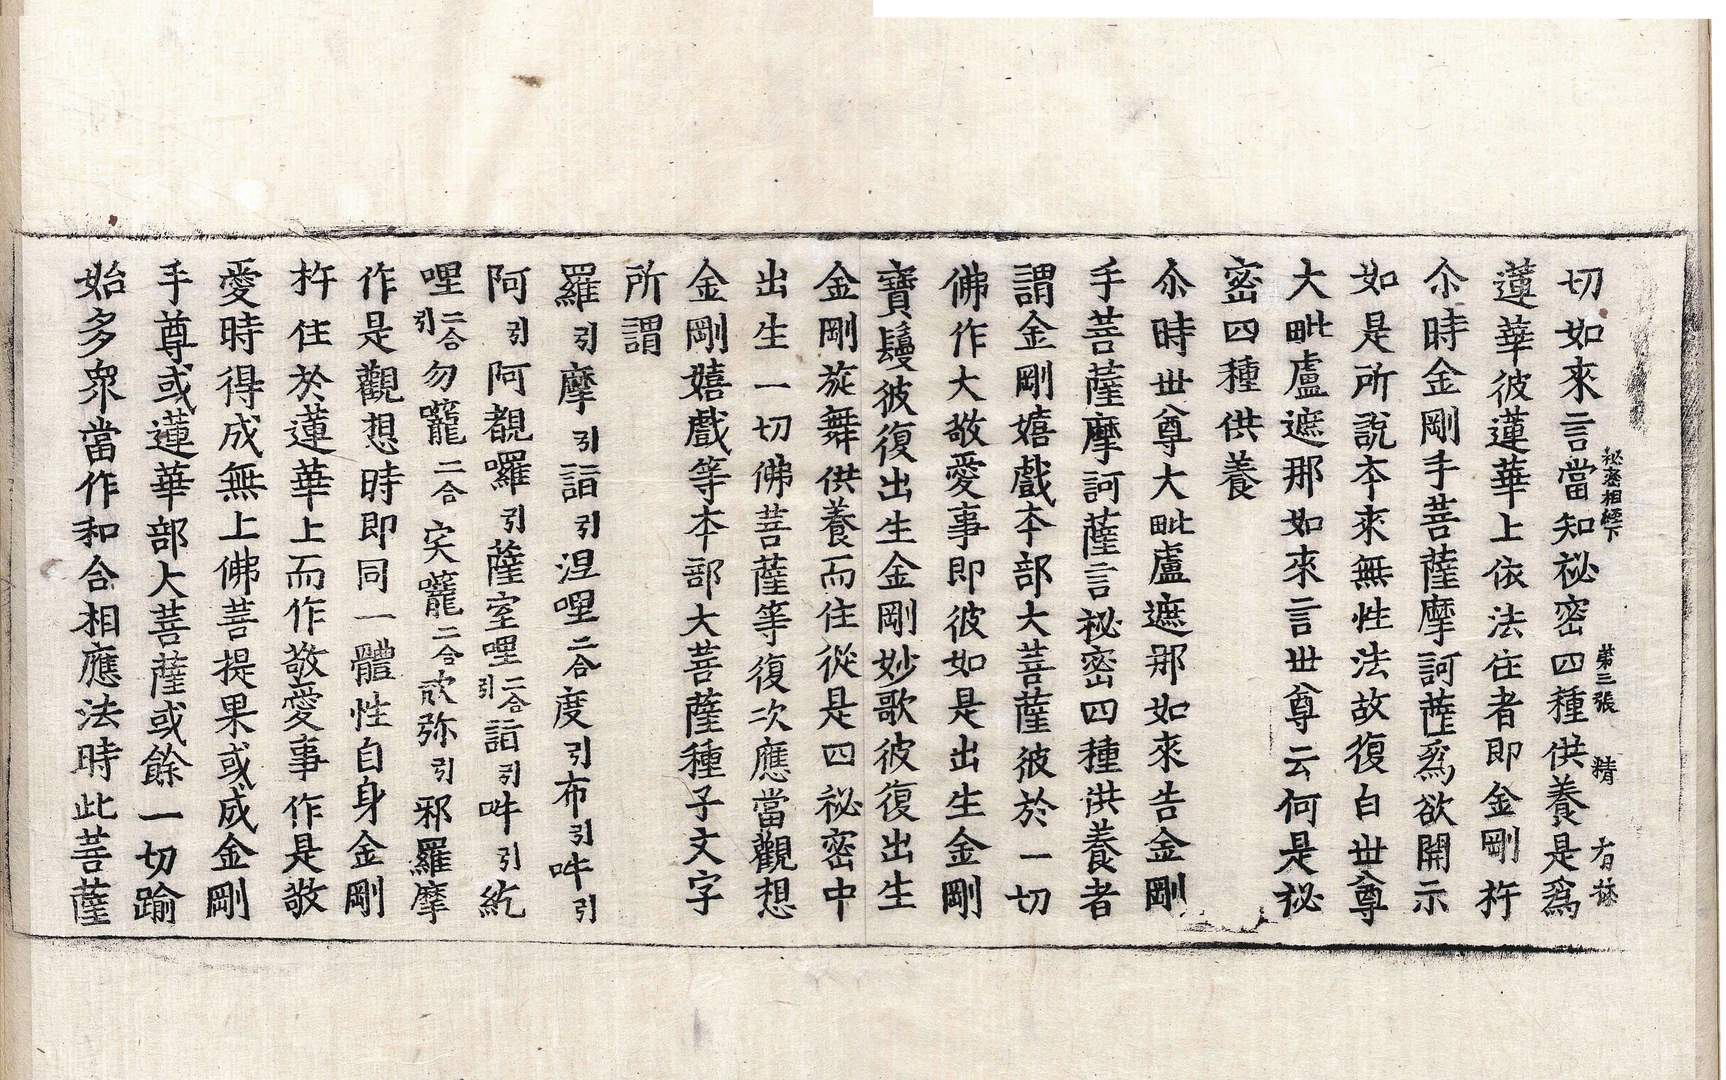 秘密相經下 第三張 精
切如來言當知祕密四種供養是爲
蓮華彼蓮華上依法住者即金剛杵
尒時金剛手菩薩摩訶薩爲欲開示
如是所說本來無性法故復白世尊
大毗盧遮那如來言世尊云何是秘
密四種供養
尒時世尊大毗盧遮那如來告金剛
手菩薩摩訶薩言祕密四種供養者
謂金剛嬉戲本部大菩薩彼於一切
佛作大敬愛事即彼如是出生金剛
寶鬘彼復出生金剛妙歌彼復出生
金剛旋舞供養而住從是四祕密中
出生一切佛菩薩等復次應當觀想
金剛嬉戲等本部大菩薩種子文字
所謂
羅引摩引誐引涅哩二合度引布引吽引
阿引阿覩囉引薩室哩二合引誐引吽引紇
哩二合引勿籠二合突籠二合欬弥引邪羅摩
作是觀想時即同一體性自身金剛
杵住於蓮華上而作敬愛事作是敬
愛時得成無上佛菩提果或成金剛
手尊或蓮華部大菩薩或餘一切踰
始多衆當作和合相應法時此菩薩